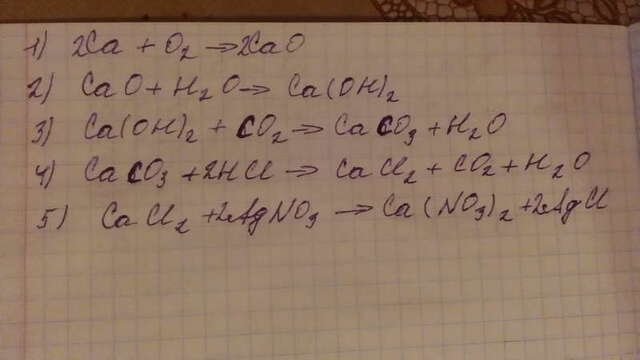 1) 2Ca + O₂ → 2CaO
2) CaO + H₂O → Ca(OH)₂
3) Ca(OH)₂ + CO₂ → CaCO₃ + H₂O
4) CaCO₃ + 2HCl → CaCl₂ + CO₂ + H₂O
5) CaCl₂ + 2AgNO₃ → Ca(NO₃)₂ + 2AgCl